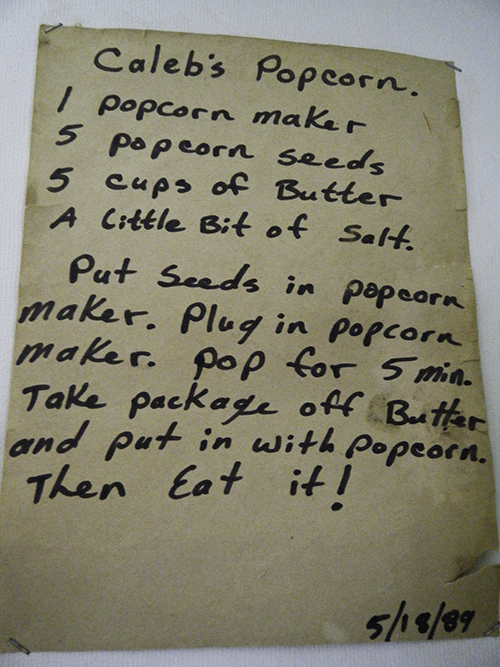 Caleb's Popcorn.
1 popcorn maker
5 popcorn seeds
5 cups of Butter
A Little Bit of Salt.
Put Seeds in popcorn
maker. Plug in popcorn
maker. Pop for 5 min.
Take package off Butter
and put in with popcorn.
Then Eat it!
5/18/89